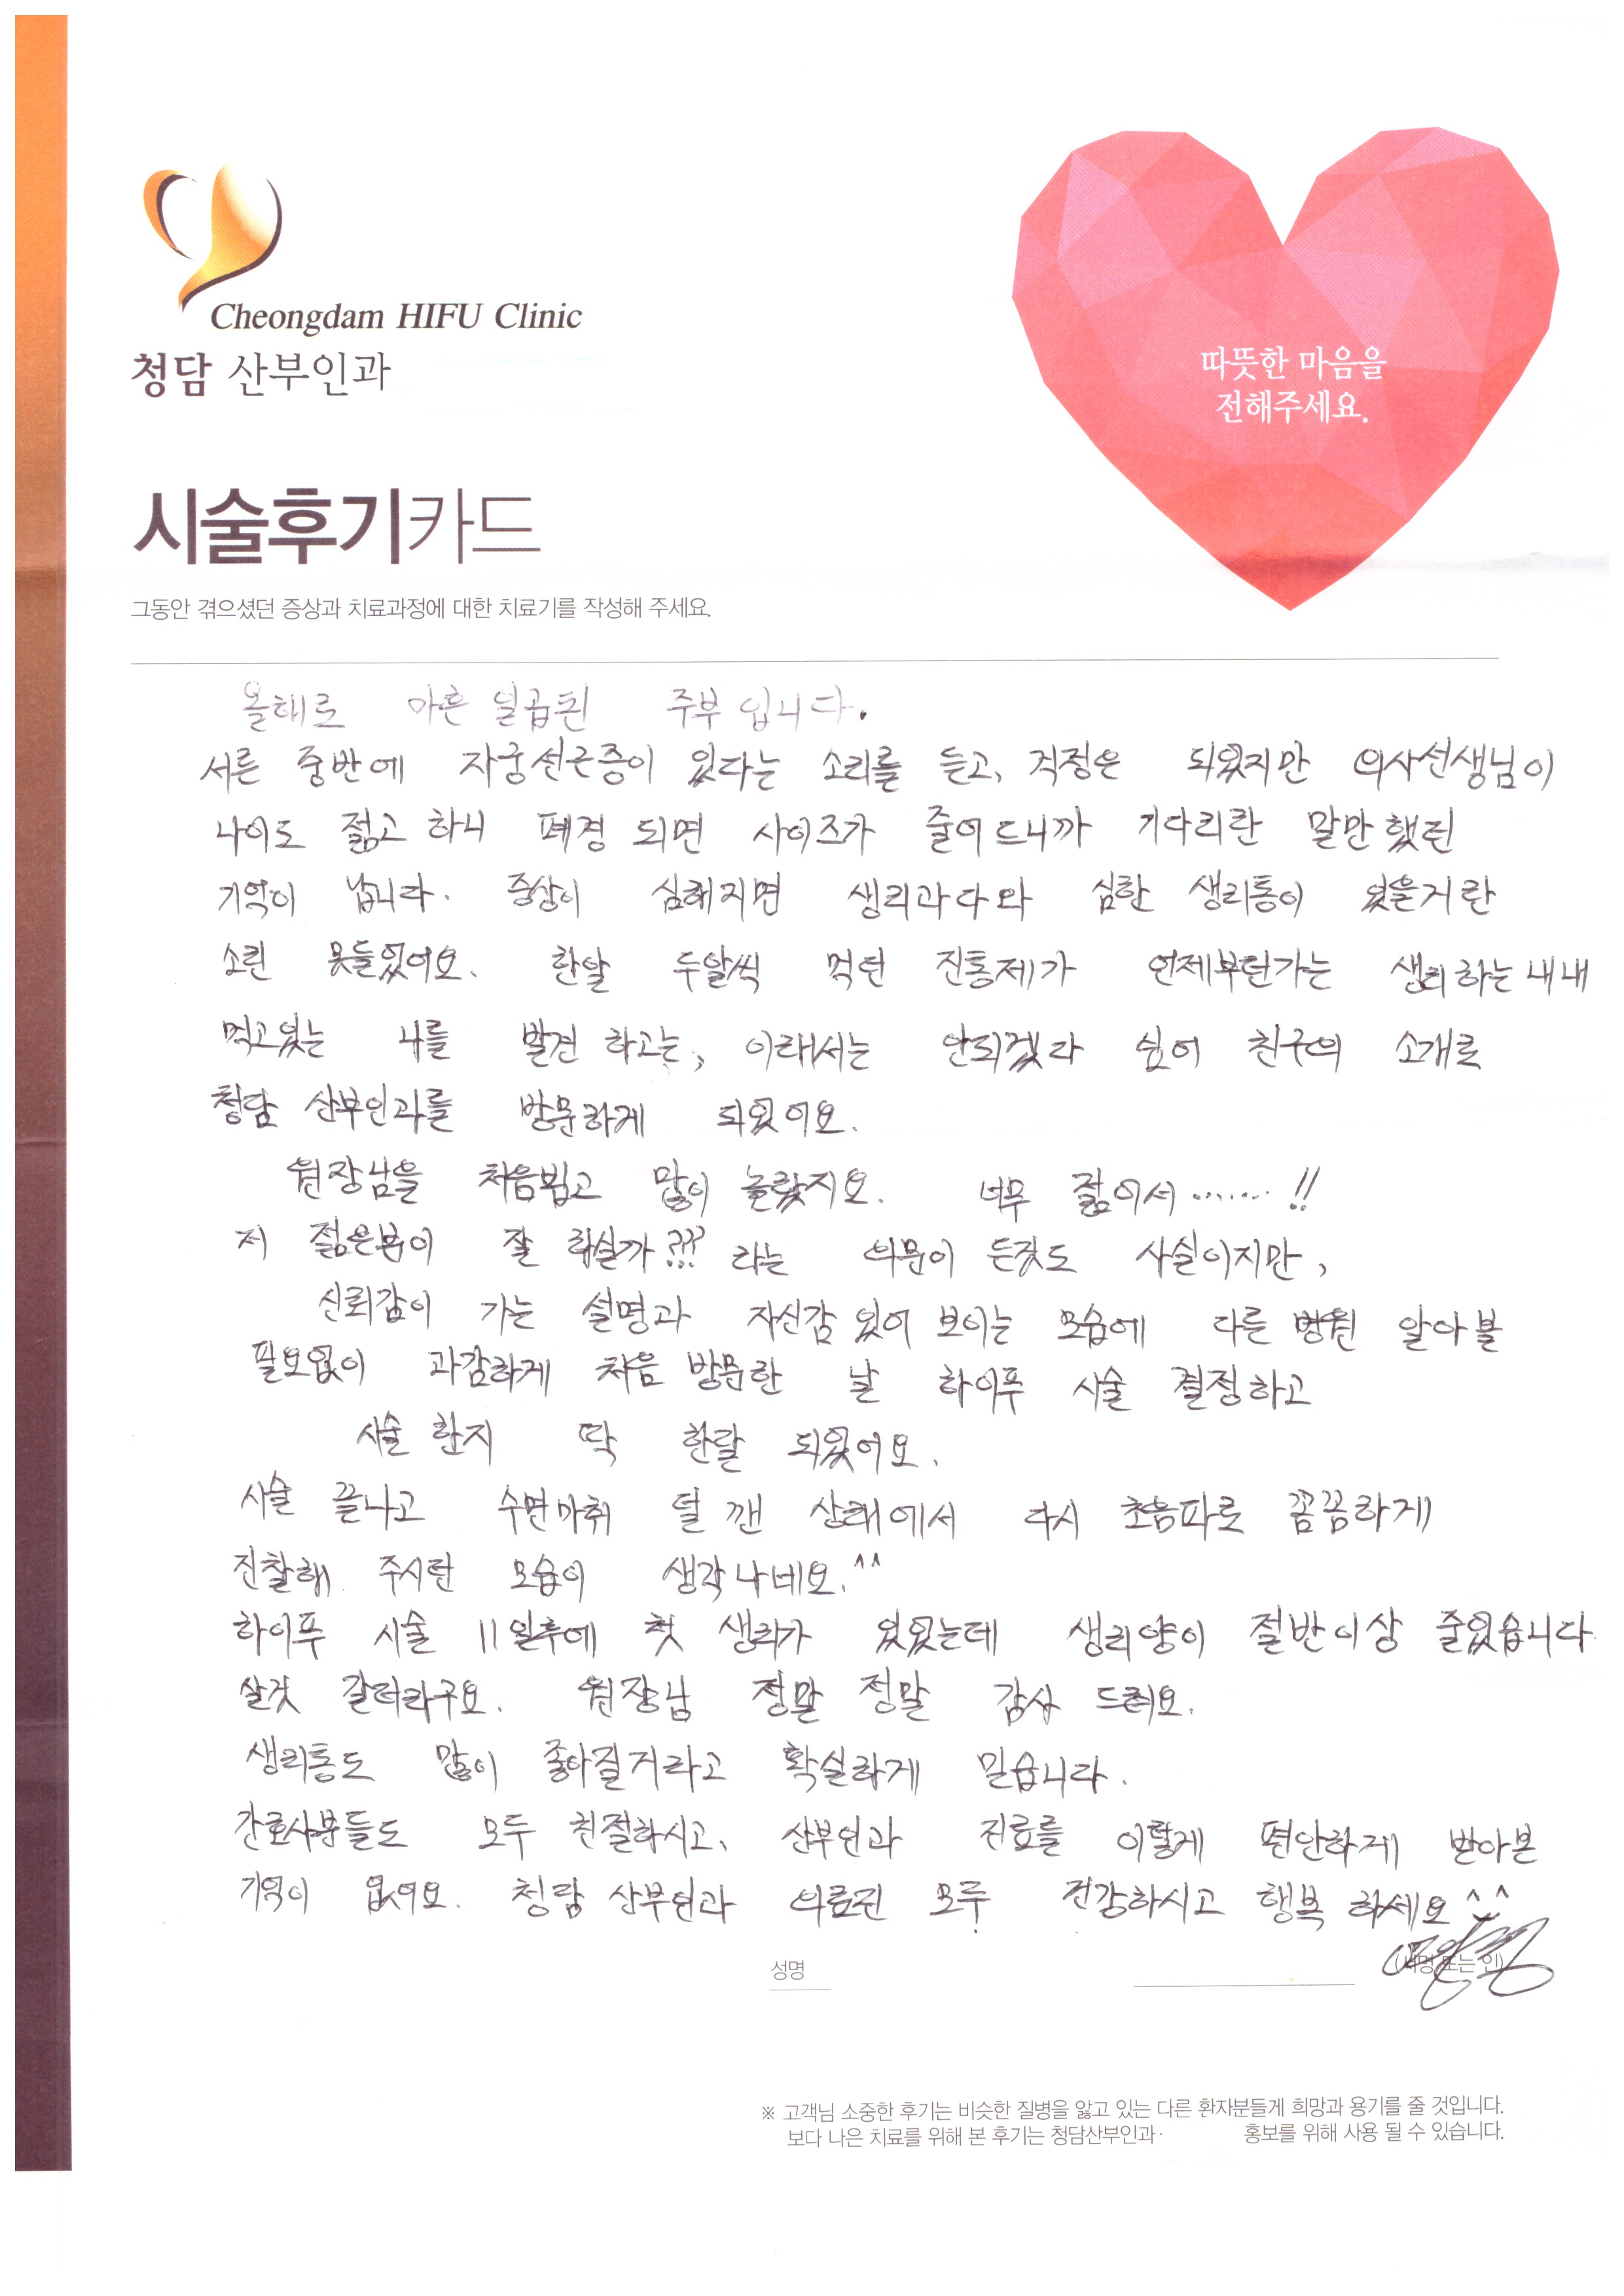 Cheongdam HIFU Clinic
청담 산부인과
따뜻한 마음을
전해주세요.
시술후기카드
그동안 겪으셨던 증상과 치료과정에 대한 치료기를 작성해 주세요.
올해로 마흔 일곱된 주부 입니다.
서른 중반에 자궁선근증이 있다는 소리를 듣고, 걱정은 되었지만 의사선생님이
나이도 젊고 하니 폐경 되면 사이즈가 줄어드니까 기다리란 말만 했던
기억이 납니다. 증상이 심해지면 생리과다와 심한 생리통이 있을거란
소린 못들었어요. 한알 두알씩 먹던 진통제가 언제부턴가는 생리하는 내내
먹고있는 나를 발견 하고는, 이래서는 안되겠다 싶어 친구의 소개로
청담 산부인과를 방문하게 되었어요.
원장님을 처음뵙고 많이 놀랐지요. 너무 젊어서 ........ !!
저 젊은분이 잘 하실까??? 라는 의문이 든것도 사실이지만,
신뢰감이 가는 설명과 자신감 있어 보이는 모습에 다른 병원 알아볼
필요없이 과감하게 처음 방문한 날 하이푸 시술 결정하고
시술 한지 딱 한달 되었어요.
시술 끝나고 수면마취 덜 깬 상태에서 다시 초음파로 꼼꼼하게
진찰해 주시던 모습이 생각나네요.^^
하이푸 시술 11일후에 첫 생리가 있었는데 생리양이 절반이상 줄었습니다
살것 같더라구요. 원장님 정말 정말 감사 드려요.
생리통도 많이 좋아질거라고 확실하게 믿습니다.
간호사분들도 모두 친절하시고, 산부인과 진료를 이렇게 편안하게 받아본
기억이 없어요. 청담 산부인과 의료진 모두 건강하시고 행복 하세요 ^^
성명 (서명 또는 인)
※ 고객님 소중한 후기는 비슷한 질병을 앓고 있는 다른 환자분들게 희망과 용기를 줄 것입니다.
보다 나은 치료를 위해 본 후기는 청담산부인과· 홍보를 위해 사용 될 수 있습니다.